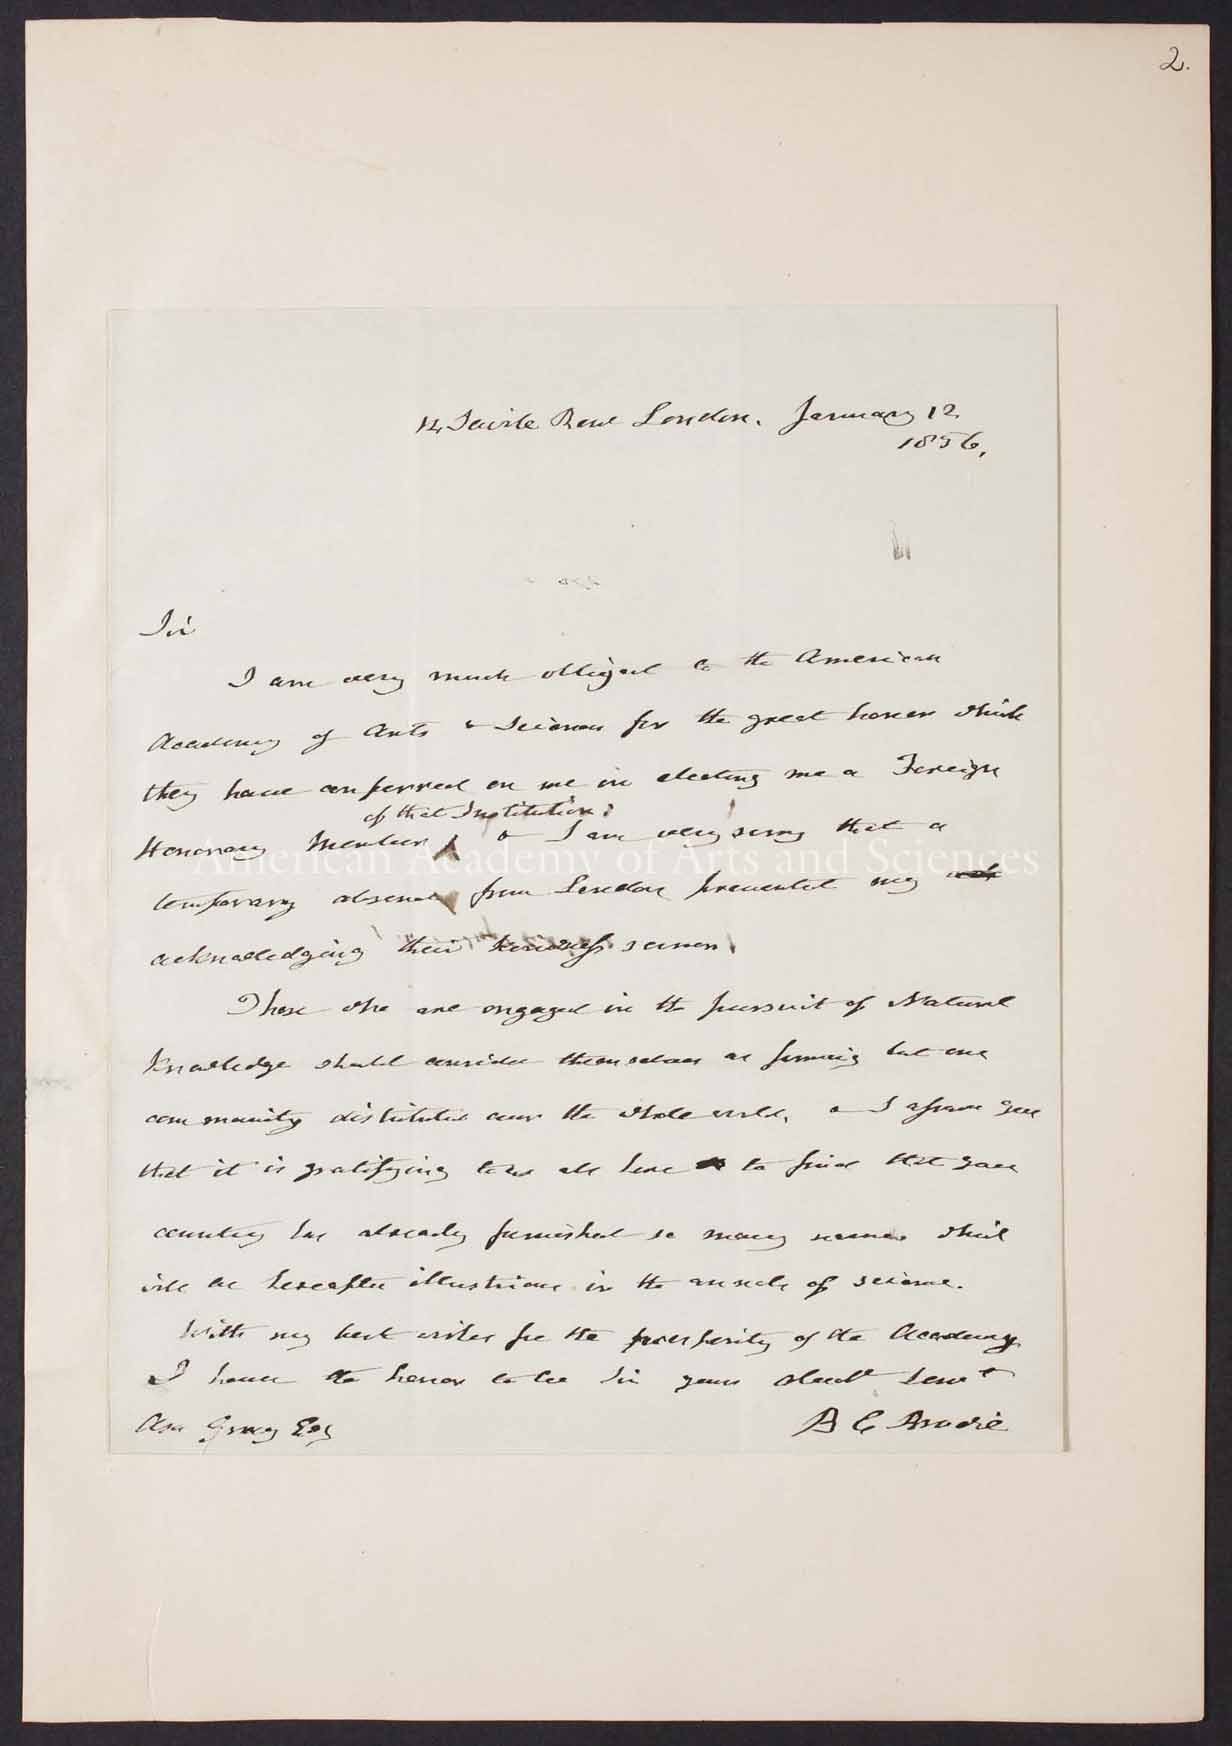 2.
14 Savile Row London. January 12
1856.
Sir
I am very much obliged to the American
Academy of Arts & Sciences for the great honor which
they have conferred on me in electing me a Foreign
of that Institution;
Honorary Member & I am very sorry that a
American Academy of Arts and Sciences
temporary absence from London prevented my
acknowledging their kindness sooner.
Those who are engaged in the pursuit of Natural
Knowledge should consider themselves as forming but one
community distributed over the whole world, & I assure you
that it is gratifying to us all here to find that your
country has already furnished so many names which
will be hereafter illustrious in the annals of science.
With my best wishes for the prosperity of the Academy
I have the honor to be Sir your obedt Servt
Asa Gray Esq
B C Brodie